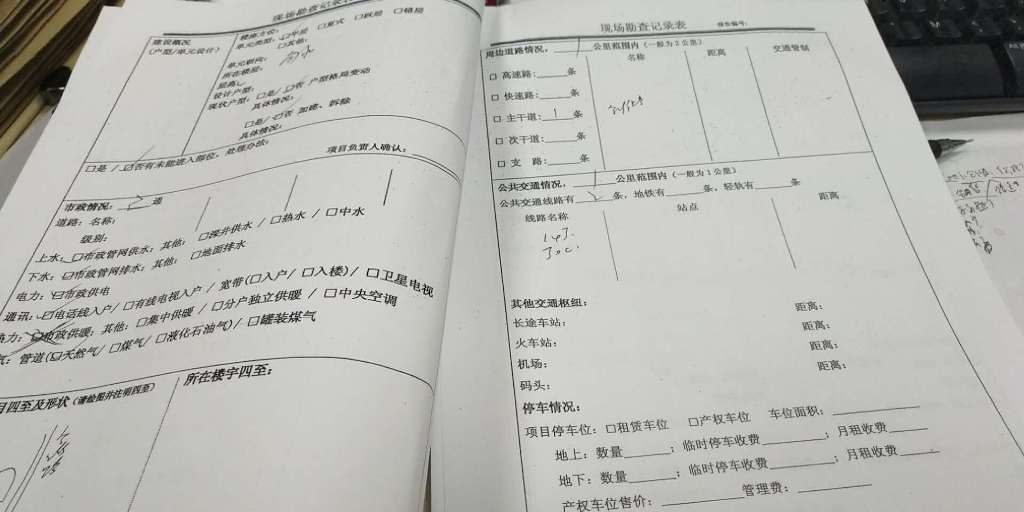 现场勘查记录表
建设概况
(户型/单元设计)
楼栋方位:
单元类型: ☑平层 □复式 □跃层 □错层
□其他:
单元朝向: 南北
所在楼层:
层高:
设计户型:
现状户型: □是/☑否 户型格局变动
具体情况:
□是/☑否 加建、拆除
具体情况:
□是/☑否有未能进入部位,处理办法:
项目负责人确认:
市政情况: 通
道路: 名称:
级别:
上水: ☑市政管网供水; 其他: □深井供水 / □热水 / □中水
下水: ☑市政管网排水; 其他: □地面排水
电力: ☑市政供电
通讯: ☑电话线入户/ □有线电视入户 / 宽带(□入户/ □入楼)/ □卫星电视
热力: 市政供暖; 其他: □集中供暖 / □分户独立供暖 / □中央空调
气: 管道(☑天然气/ □煤气/ □液化石油气)/ □罐装煤气
目四至及形状 (请绘图并注明四至)
所在楼宇四至:
现场勘查记录表
报告编号:
周边道路情况, 1 公里范围内(一般为2公里)
名称 距离 交通管制
□ 高速路:______条
□ 快速路:______条
□ 主干道: 1 条
□ 次干道:______条
□ 支 路:______条
公共交通情况, 1 公里范围内(一般为1公里)
公共交通线路有 2 条, 地铁有______条, 轻轨有______条
线路名称 站点 距离
其他交通枢纽:
长途车站: 距离:
火车站: 距离:
机场: 距离:
码头: 距离:
停车情况:
项目停车位: □租赁车位 □产权车位 车位面积:
地上: 数量______; 临时停车收费______; 月租收费______
地下: 数量______; 临时停车收费______; 月租收费______.
产权车位售价:______管理费:______